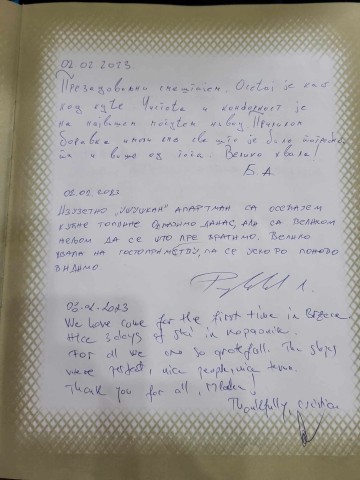 02.02.2023.
Презадовољни смештајем. Осећај је као
код куће. Чистоћа и комфорност је
на највишем могућем нивоу. Приликом
боравка имали смо све што је било потребно
па и више од тога. Велико хвала!
Б. А.
02.02.2023
Изузетно "ушушкан" апартман са осећајем
кућне топлине. Одлазимо данас, али са великом
жељом да се што пре вратимо. Велико
хвала на гостопримству, па се ускоро поново
видимо.
02.02.2023
We have come for the first time in
3 days of ski in kopaonik.
For all we are so gratefull. The slops
were perfect, nice people, nice
Thank you for all, Mladen!
Thankfully, Cristian